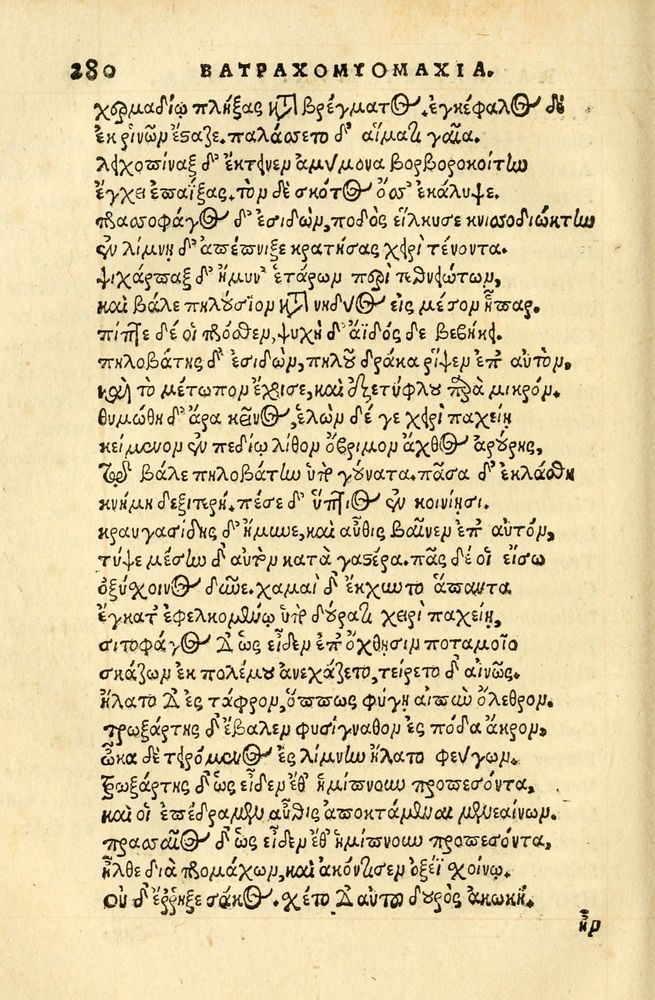 280 ΒΑΤΡΑΧΟΜΥΟΜΑΧΙΑ.
χερμαδίῳ πλήξας κατὰ βρέγματος. ἐγκέφαλος δὲ
ἐκ ῥινῶν ἔσταζε. παλάσσετο δ' αἵματι γαῖα.
λειχοπίναξ δ' ἔκτεινεν ἀμύμονα βορβοροκοίτην
ἔγχει ἐπαΐξας. τὸν δὲ σκότος ὄσσ' ἐκάλυψε.
πρασσοφάγος δ' ἐσιδὼν, ποδὸς εἵλκυσε κνισσοδιώκτην
ἐν λίμνῃ δ' ἀπέπνιξε κρατήσας χειρὶ τένοντα.
ψιχάρπαξ δ' ἤμυν' ἑτάρων περὶ τεθνειώτων,
καὶ βάλε πηλούσιον κατὰ νηδύος εἰς μέσον ἧπαρ.
πίπτε δέ οἱ πρόσθεν, ψυχὴ δ' ἄϊδός δε βεβήκει.
πηλοβάτης δ' ἐσιδὼν, πηλοῦ δράκα ῥίψεν ἐπ' αὐτὸν,
καὶ τὸ μέτωπον ἔχρισε, καὶ ἐξετύφλου παρὰ μικρόν.
θυμώθη δ' ἄρα κεῖνος, ἑλὼν δέ γε χειρὶ παχείῃ
κείμενον ἐν πεδίῳ λίθον ὄβριμον ἄχθος ἀρούρης,
τῷ βάλε πηλοβάτην ὑπὸ γούνατα. πᾶσα δ' ἐκλάσθη
κνήμη δεξιτερὴ. πέσε δ' ὕπτιος ἐν κονίῃσι.
κραυγασίδης δ' ἤμυνε, καὶ αὖθις βαῖνεν ἐπ' αὐτόν,
τύψε μέσην δ' αὐτὸν κατὰ γαστέρα. πᾶς δέ οἱ εἴσω
ὀξύχοινος δῦνε. χαμαὶ δ' ἔκχυντο ἅπαντα
ἔγκατ' ἐφελκομένῳ ὑπὸ δούρατι χειρὶ παχείῃ,
σιτοφάγος δ' ὡς εἶδεν ἐπ' ὄχθησιν ποταμοῖο
σκάζων ἐκ πολέμου ἀνεχάζετο, τείρετο δ' αἰνῶς.
ἥλατο δ' ἐς τάφρον, ὅππως φύγῃ αἰπὺν ὄλεθρον.
τρωξάρτης δ' ἔβαλεν φυσίγναθον ἐς πόδα ἄκρον,
ὦκα δὲ τειρόμενος ἐς λίμνην ἥλατο φεύγων.
τρωξάρτης δ' ὡς εἶδεν ἔθ' ἡμίπνουν προπεσόντα,
καὶ οἱ ἐπέδραμεν αὖθις ἀποκτάμεναι μενεαίνων.
πρασσαῖος δ' ὡς εἶδεν ἔθ' ἡμίπνουν προπεσόντα,
ἦλθε διὰ προμάχων, καὶ ἀκόντισεν ὀξέϊ χοίνῳ.
Οὐ δ' ἔρρηξε σάκος. σχέτο δ' αὐτοῦ δουρὸς ἀκωκή.
ἦν